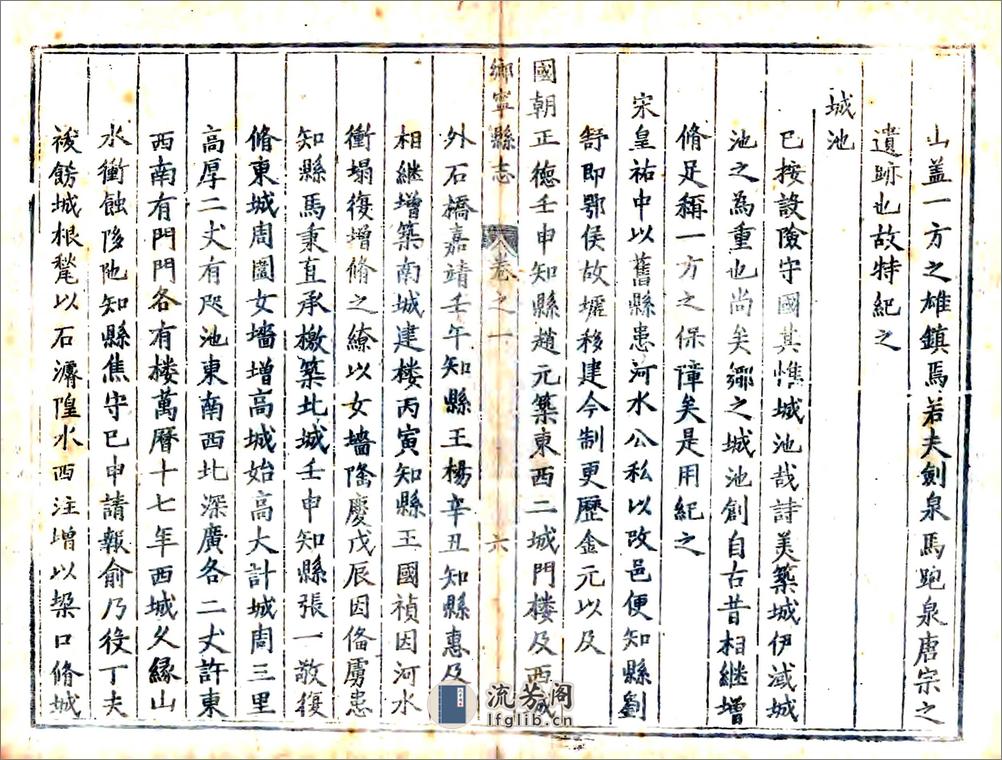 山盖一方之雄鎮焉若夫劍泉馬跑泉唐宗之
遺跡也故特紀之
城池
已按設險守國其惟城池哉詩美築城伊淢城
池之為重也尚矣鄉之城池創自古昔相継增
脩足稱一方之保障矣是用紀之
宋皇祐中以舊縣患河水公私以改邑便知縣劉
舒即鄂侯故壥移建今制更歷金元以及
國朝正德壬申知縣趙元築東西二城門楼及西城
鄉寧縣志 卷之一 六
外石橋嘉靖壬午知縣王楊辛丑知縣惠及
相継增築南城建楼丙寅知縣王國禎因河水
衝塌復增脩之繚以女墻隆慶戊辰因俻虜患
知縣馬秉直承檄築北城壬申知縣張一敬復
脩東城周圍女墻增高城始高大計城周三里
高厚二丈有咫池東南西北深廣各二丈許東
西南有門門各有楼萬曆十七年西城乆縁山
水衝蝕陊阤知縣焦守已申請報俞乃役丁夫
城根甃以石濬隍水西注增以梁口脩城
流芳阁
lfglib.cn